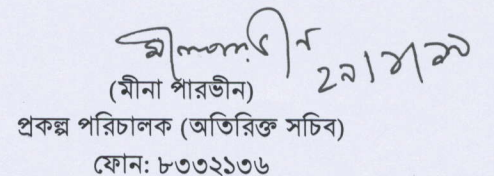 (মীনা পারভীন)
প্রকল্প পরিচালক (অতিরিক্ত সচিব)
ফোন: ৮৩৩২১৩৬